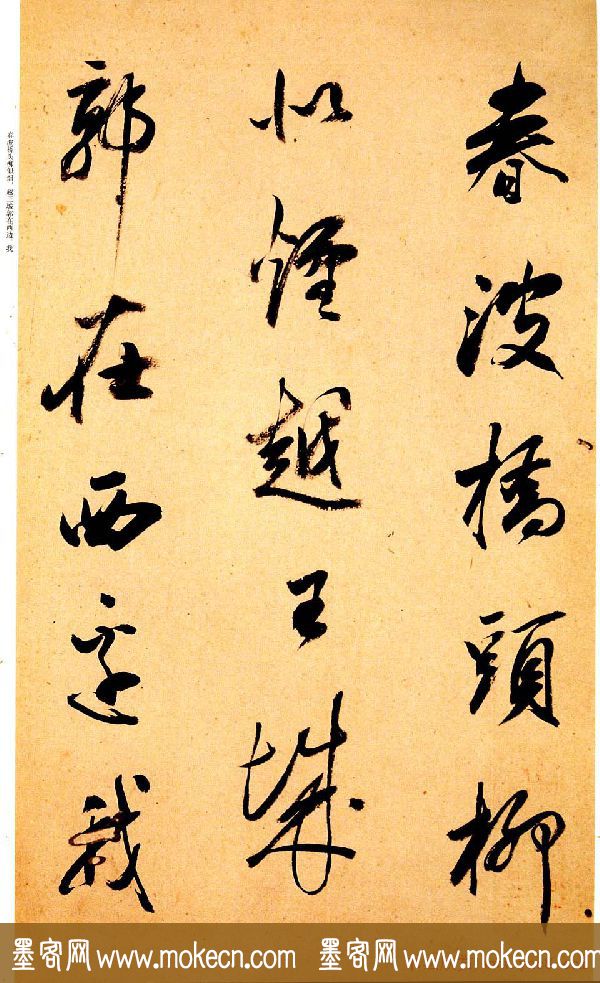 春波橋頭柳
似煙越王城
郭在西邊我
春波桥头柳似烟，越王城郭在西边。我
墨客网 www.mokecn.com 墨客网 www.mokecn.com